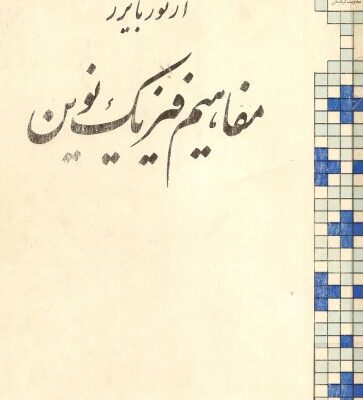 آرتور بایزر
مفاهیم فیزیک نوین